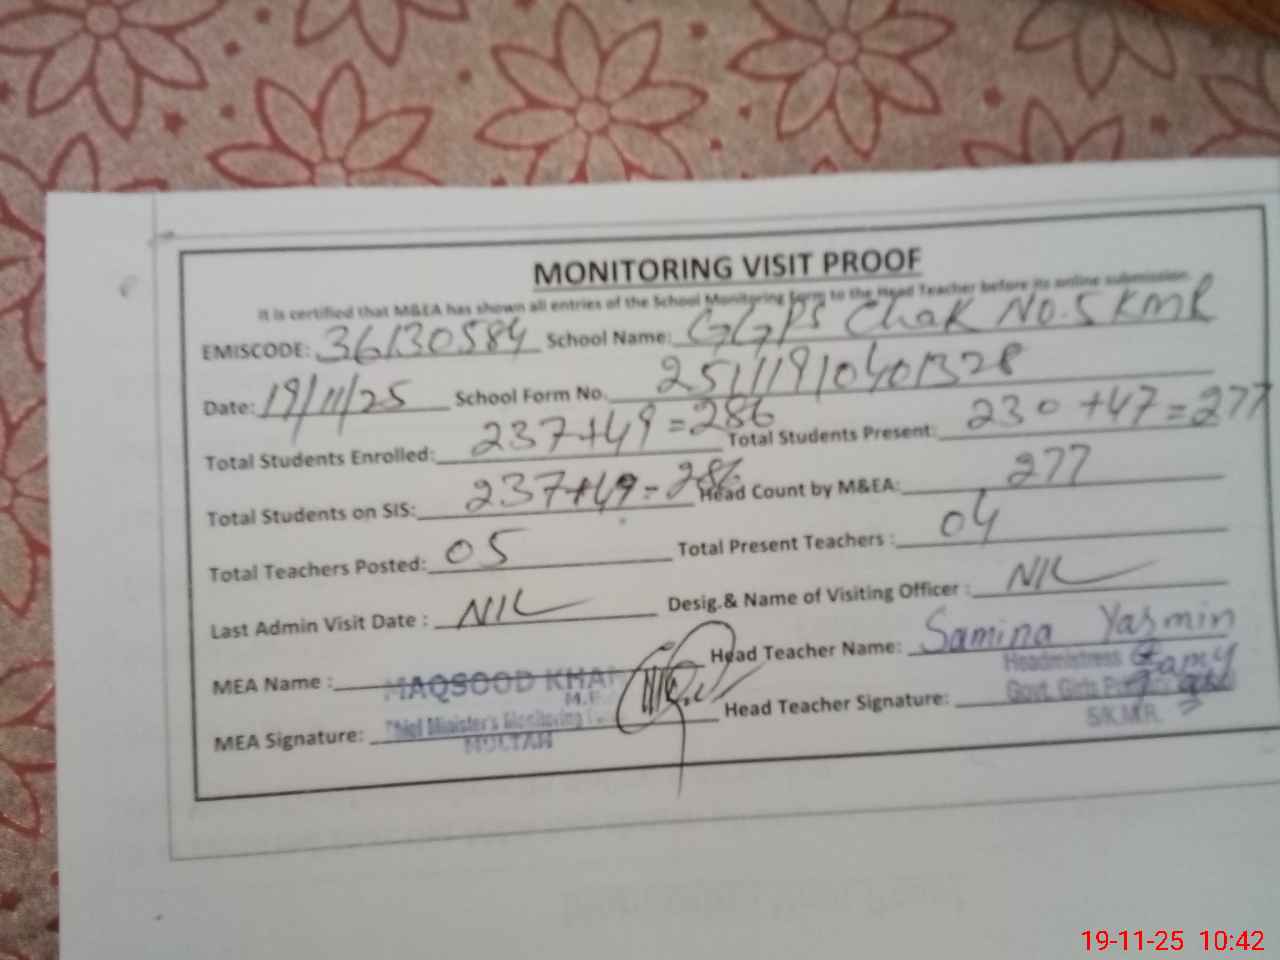 MONITORING VISIT PROOF
It is certified that M&EA has shown all entries of the School Monitoring Form to the Head Teacher before its online submission
EMISCODE: 36130584 School Name: GGPS Chak No.5 KMR
Date: 19/11/25 School Form No. 25111910401328
Total Students Enrolled: 237+49=286 Total Students Present: 230+47=277
Total Students on SIS: 237+49=286 Head Count by M&EA: 277
Total Teachers Posted: 05 Total Present Teachers : 04
Last Admin Visit Date : NIL Desig.& Name of Visiting Officer : NIL
MEA Name : MAQSOOD KHAN Head Teacher Name: Samina Yasmin
M.E.
Headmistress
MEA Signature: Chief Minister's Monitoring Head Teacher Signature: Govt. Girls
MULTAN
5/K.M.R.
19-11-25 10:42